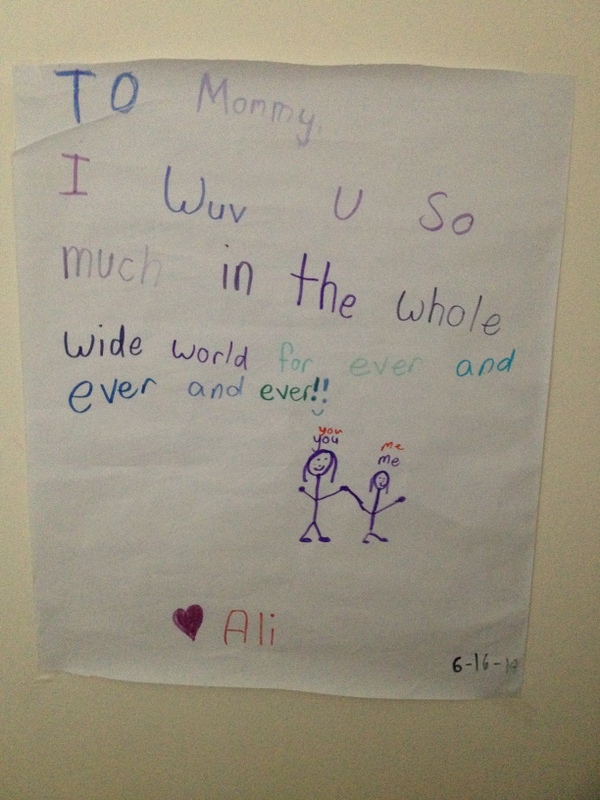 TO Mommy,
I Wuv U So
much in the whole
wide world for ever and
ever and ever!!
you me
you me
Ali
6-16-